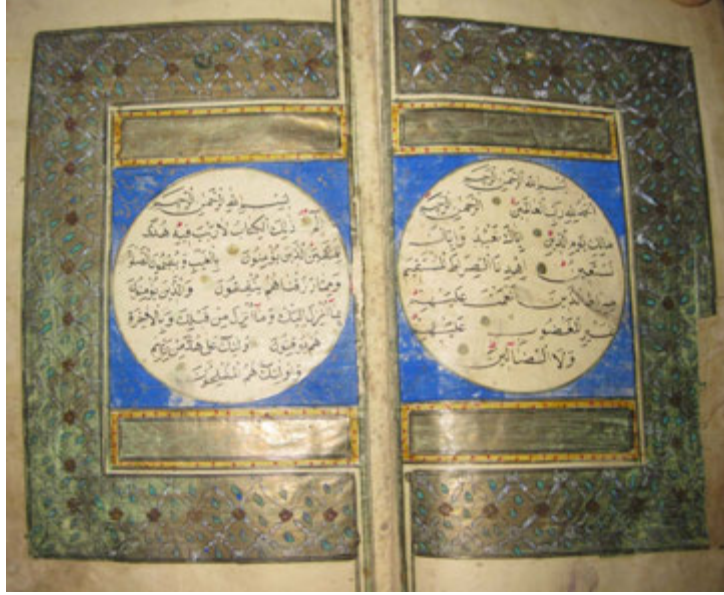 بسم الله الرحمن الرحيم
الحمد لله رب العالمين الرحمن الرحيم
مالك يوم الدين اياك نعبد واياك
نستعين اهدنا الصراط المستقيم
صراط الذين انعمت عليهم
غير المغضوب عليهم
ولا الضالين
بسم الله الرحمن الرحيم
الم ذلك الكتاب لا ريب فيه هدى
للمتقين الذين يؤمنون بالغيب ويقيمون الصلوة
ومما رزقناهم ينفقون والذين يؤمنون
بما انزل اليك وما انزل من قبلك وبالاخرة
هم يوقنون اولئك على هدى من ربهم
واولئك هم المفلحون